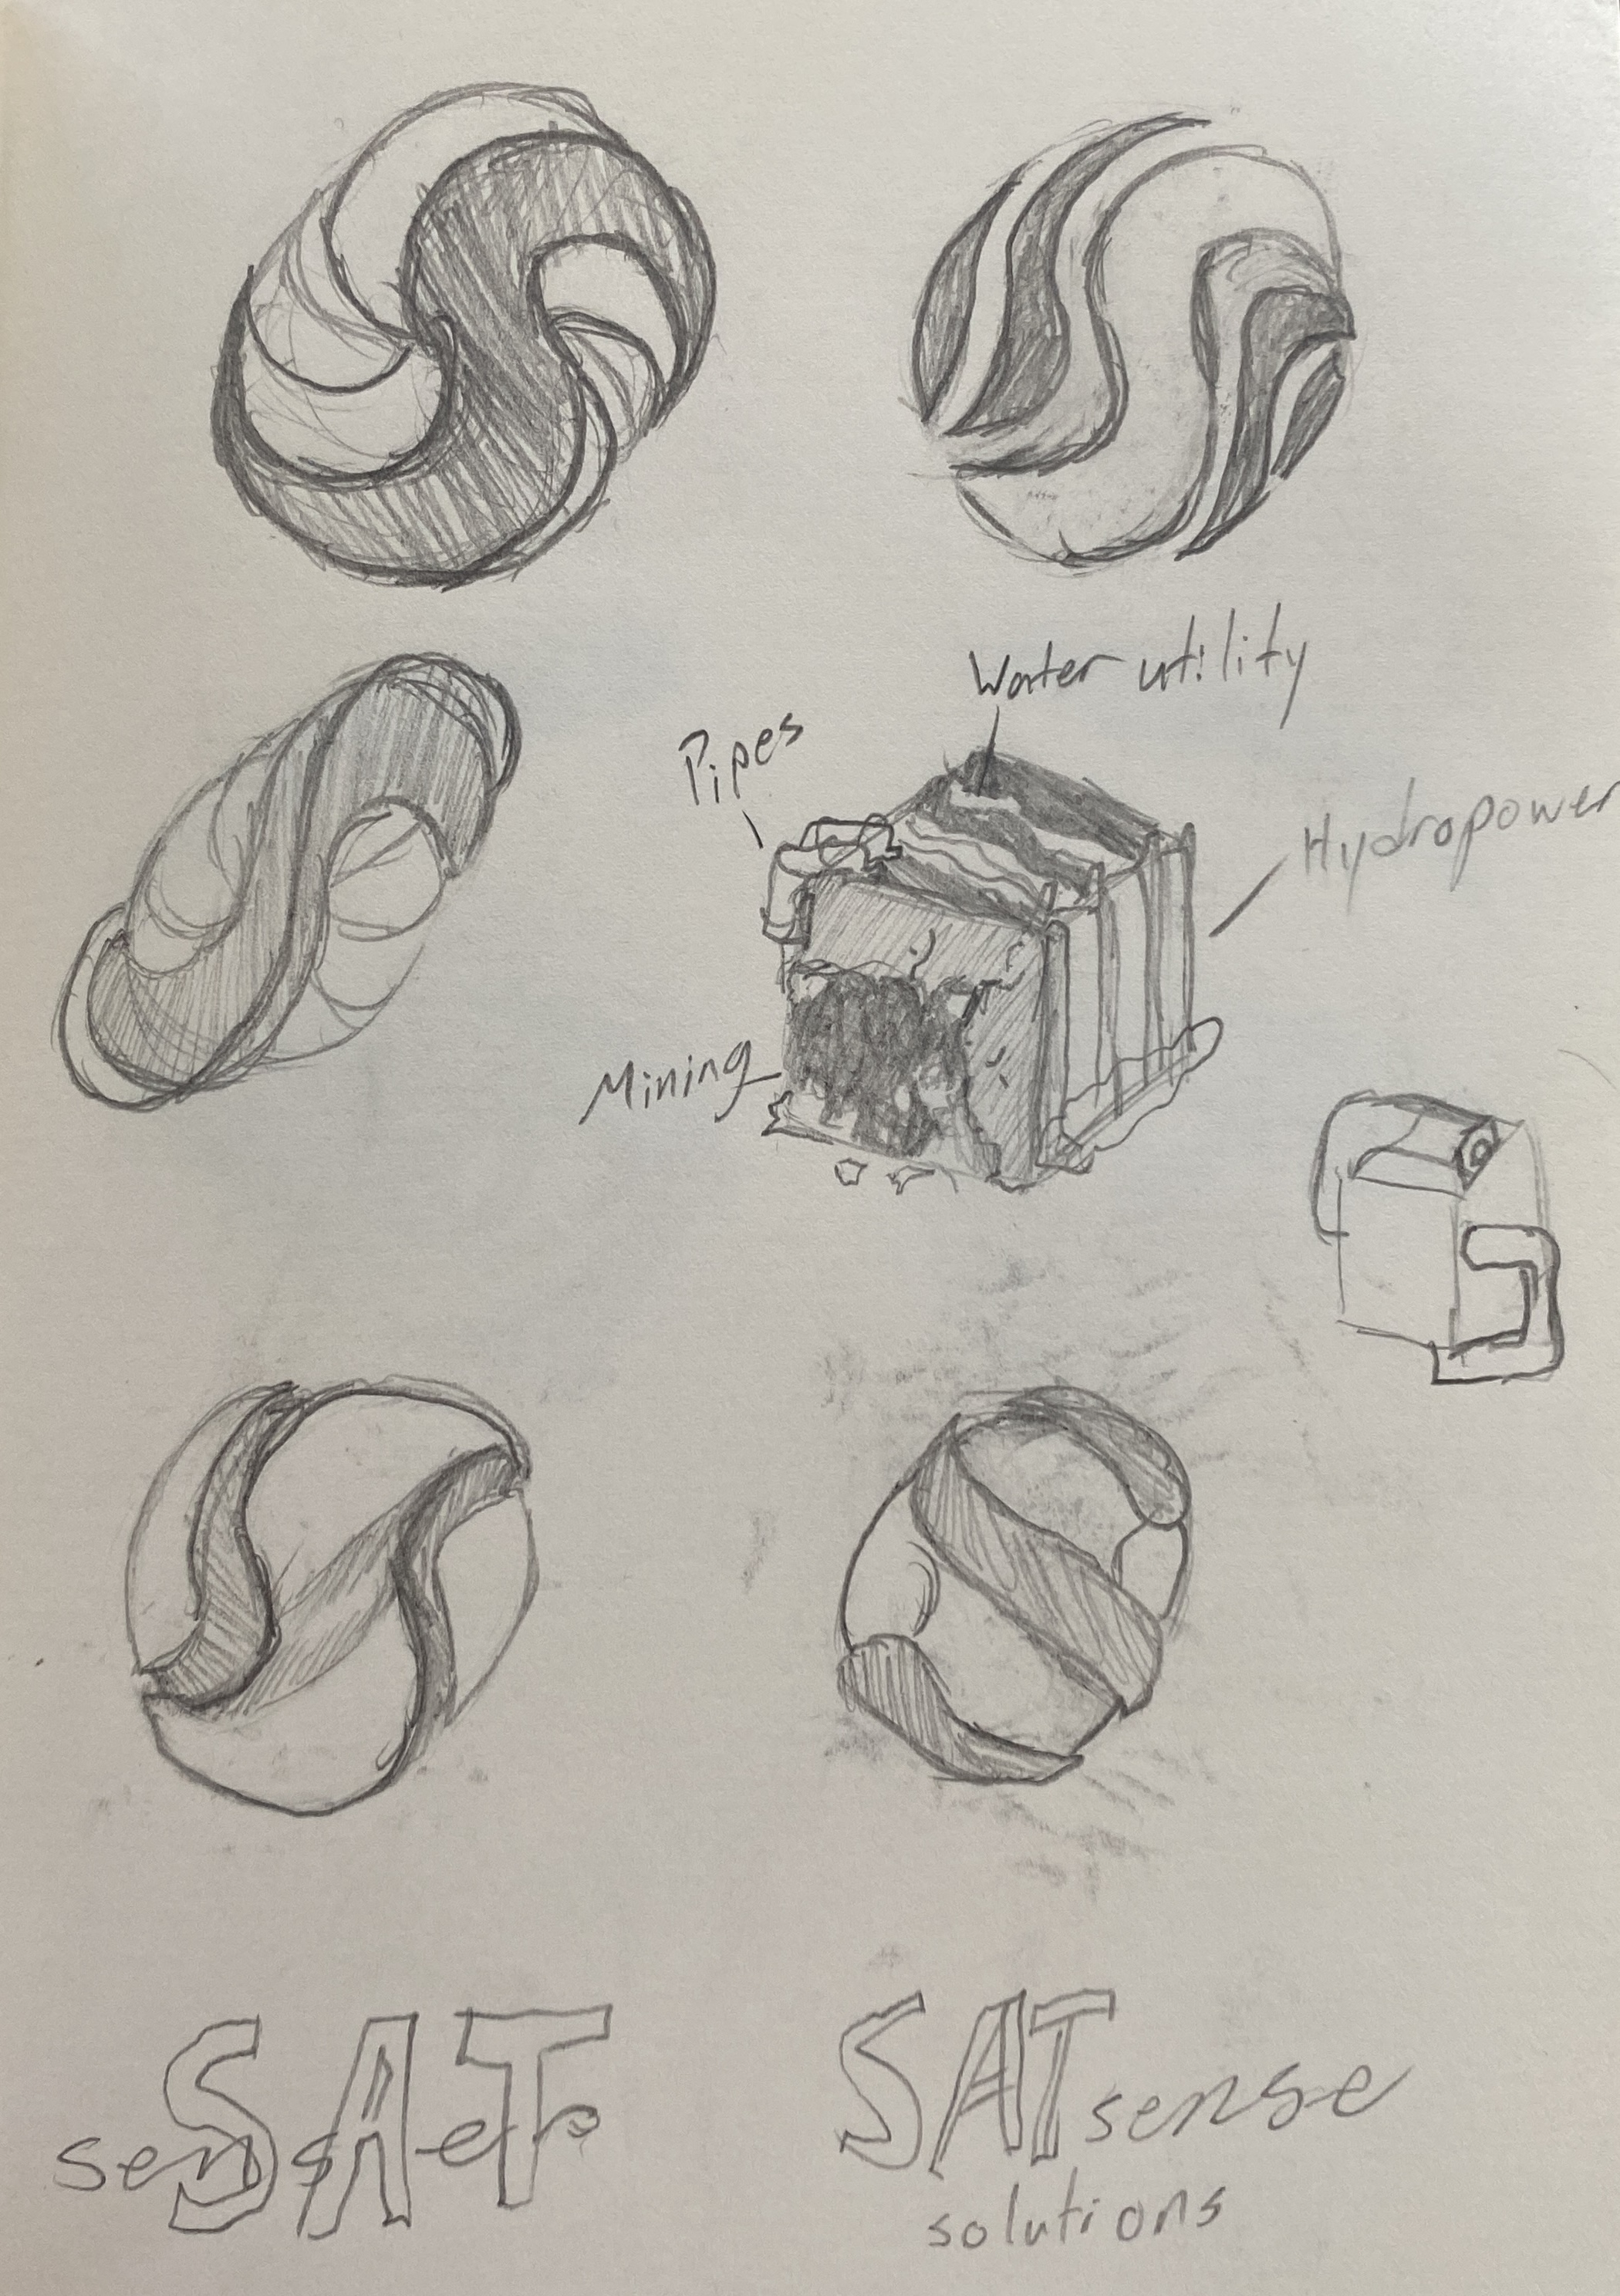 Water utility
Pipes
Hydropower
Mining
SAT
sense
SAT sense
solutions